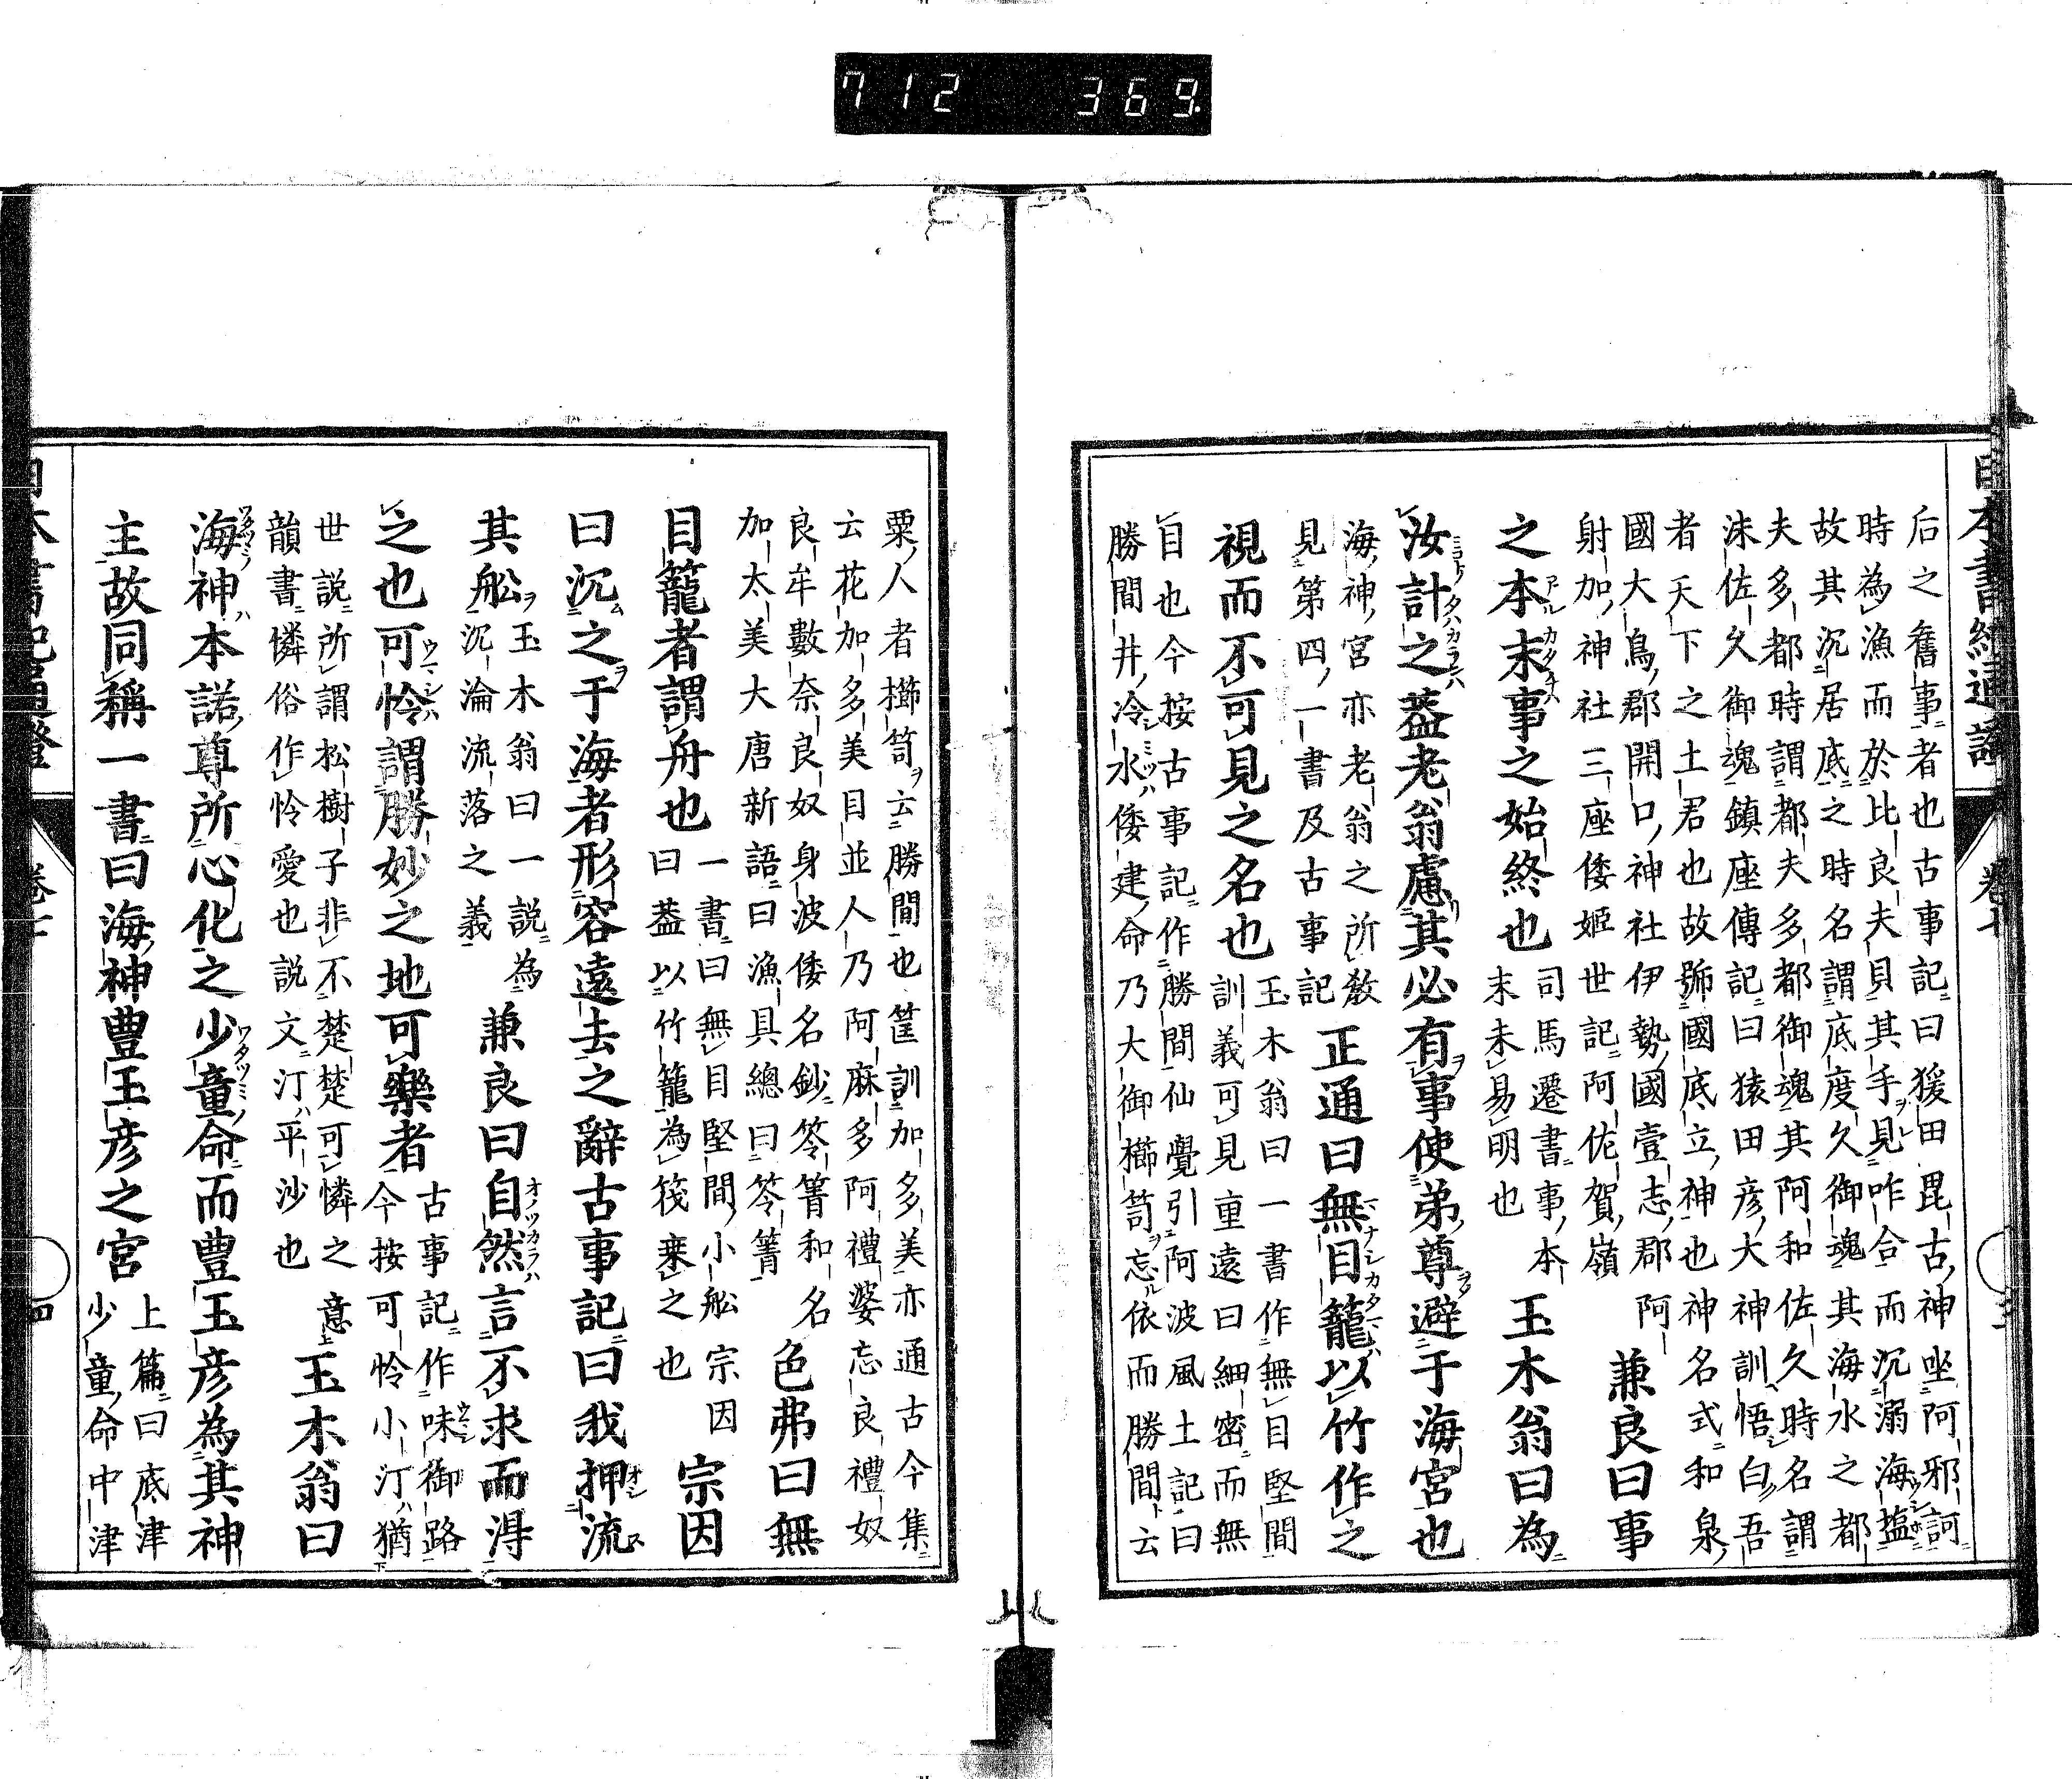 712 369
日本書紀通證 卷七
后之舊事者也古事記曰猨田毘古神坐阿邪訶
時為漁而於比良夫貝其手見咋合而沉溺海塩
故其沉居底之時名謂底度久御魂其海水之都
夫多都時謂都夫多都御魂其阿和佐久時名謂
沫佐久御魂鎮座傳記曰猿田彦大神訓悟白吾
者天下之土君也故號國底立神也神名式和泉
國大鳥郡開口神社伊勢國壹志郡阿
射加神社三座倭姬世記阿佐賀嶺
兼良曰事
之本末事之始終也
司馬遷書事本
末未易明也
玉木翁曰為
汝計之葢老翁慮其必有事使弟尊避于海宮也
海神宮亦老翁之所敎
見第四一書及古事記
正通曰無目籠以竹作之
視而不可見之名也
玉木翁曰一書作無目堅間
訓義可見重遠曰細密而無
目也今按古事記作勝間仙覺引阿波風土記曰
勝間井冷水倭建命乃大御櫛笥忘依而勝間云
粟人者櫛笥云勝間也筐訓加多美亦通古今集
云花加多美目並人乃阿麻多阿禮婆忘良禮奴
良牟數奈良奴身波倭名鈔笭箐和名
加太美大唐新語曰漁具總曰笭箐
色弗曰無
目籠者謂舟也
一書曰無目堅間小船宗因
曰葢以竹籠為筏乗之也
宗因
曰沉之于海者形容遠去之辭古事記曰我押流
其船
玉木翁曰一説為
沉淪流落之義
兼良曰自然言不求而淂
之也可怜謂勝妙之地可樂者
古事記作味御路
今按可怜小汀猶
世説所謂松樹子非不楚楚可憐之意
韻書憐俗作怜愛也説文汀平沙也
玉木翁曰
海神本諾尊所心化之少童命而豊玉彦為其神
主故同稱一書曰海神豊玉彦之宮
上篇曰底津
少童命中津
日本書紀通證 卷七 四